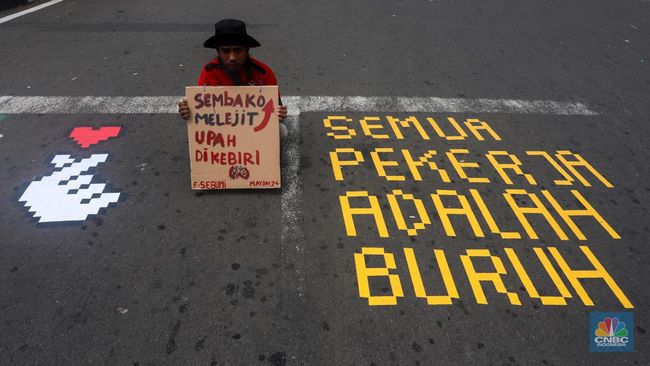 SEMBAKO
MELEJIT
UPAH
DIKEBIRI
F-SEBUMI MAYDAY 24
SEMUA
PEKERJA
ADALAH
BURUH
CNBC
INDONESIA